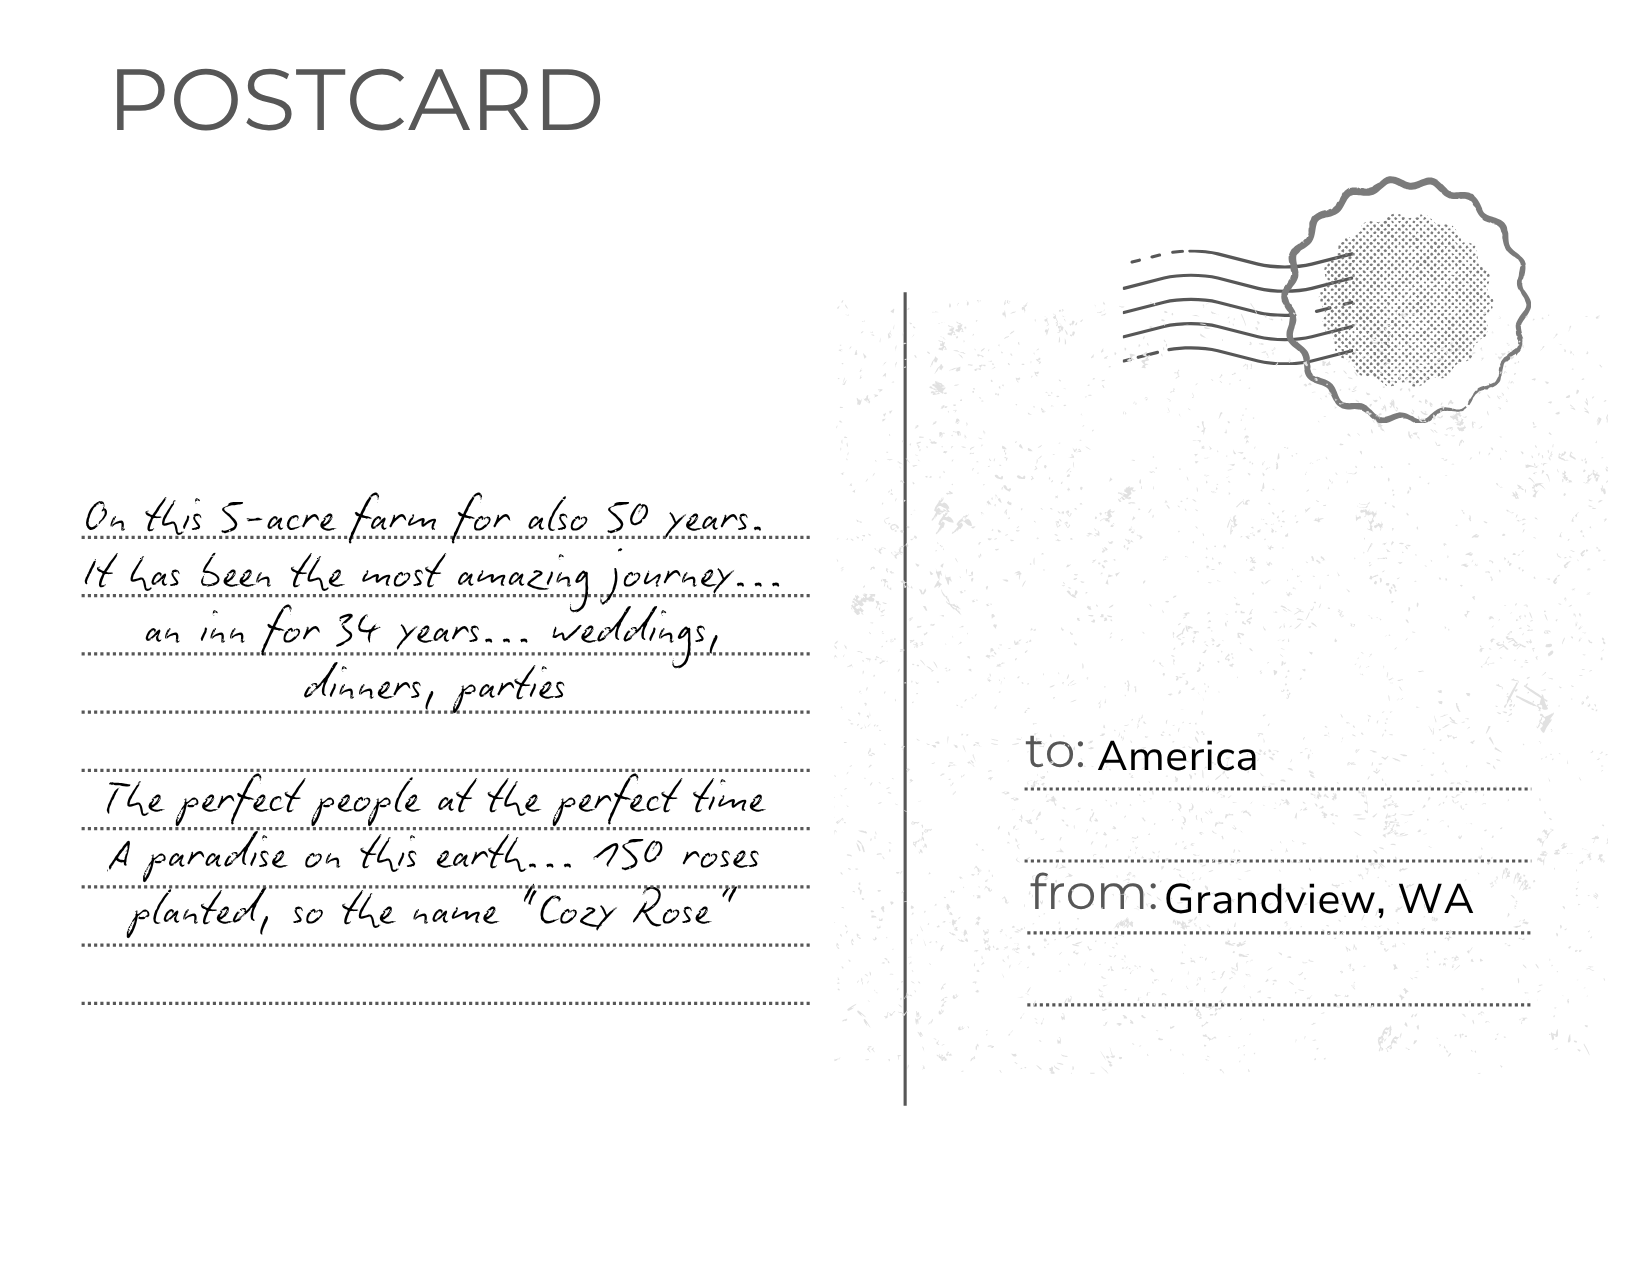 POSTCARD
On this 5-acre farm for also 50 years.
It has been the most amazing journey...
an inn for 34 years... weddings,
dinners, parties
The perfect people at the perfect time
A paradise on this earth... 150 roses
planted, so the name "Cozy Rose"
to: America
from: Grandview, WA